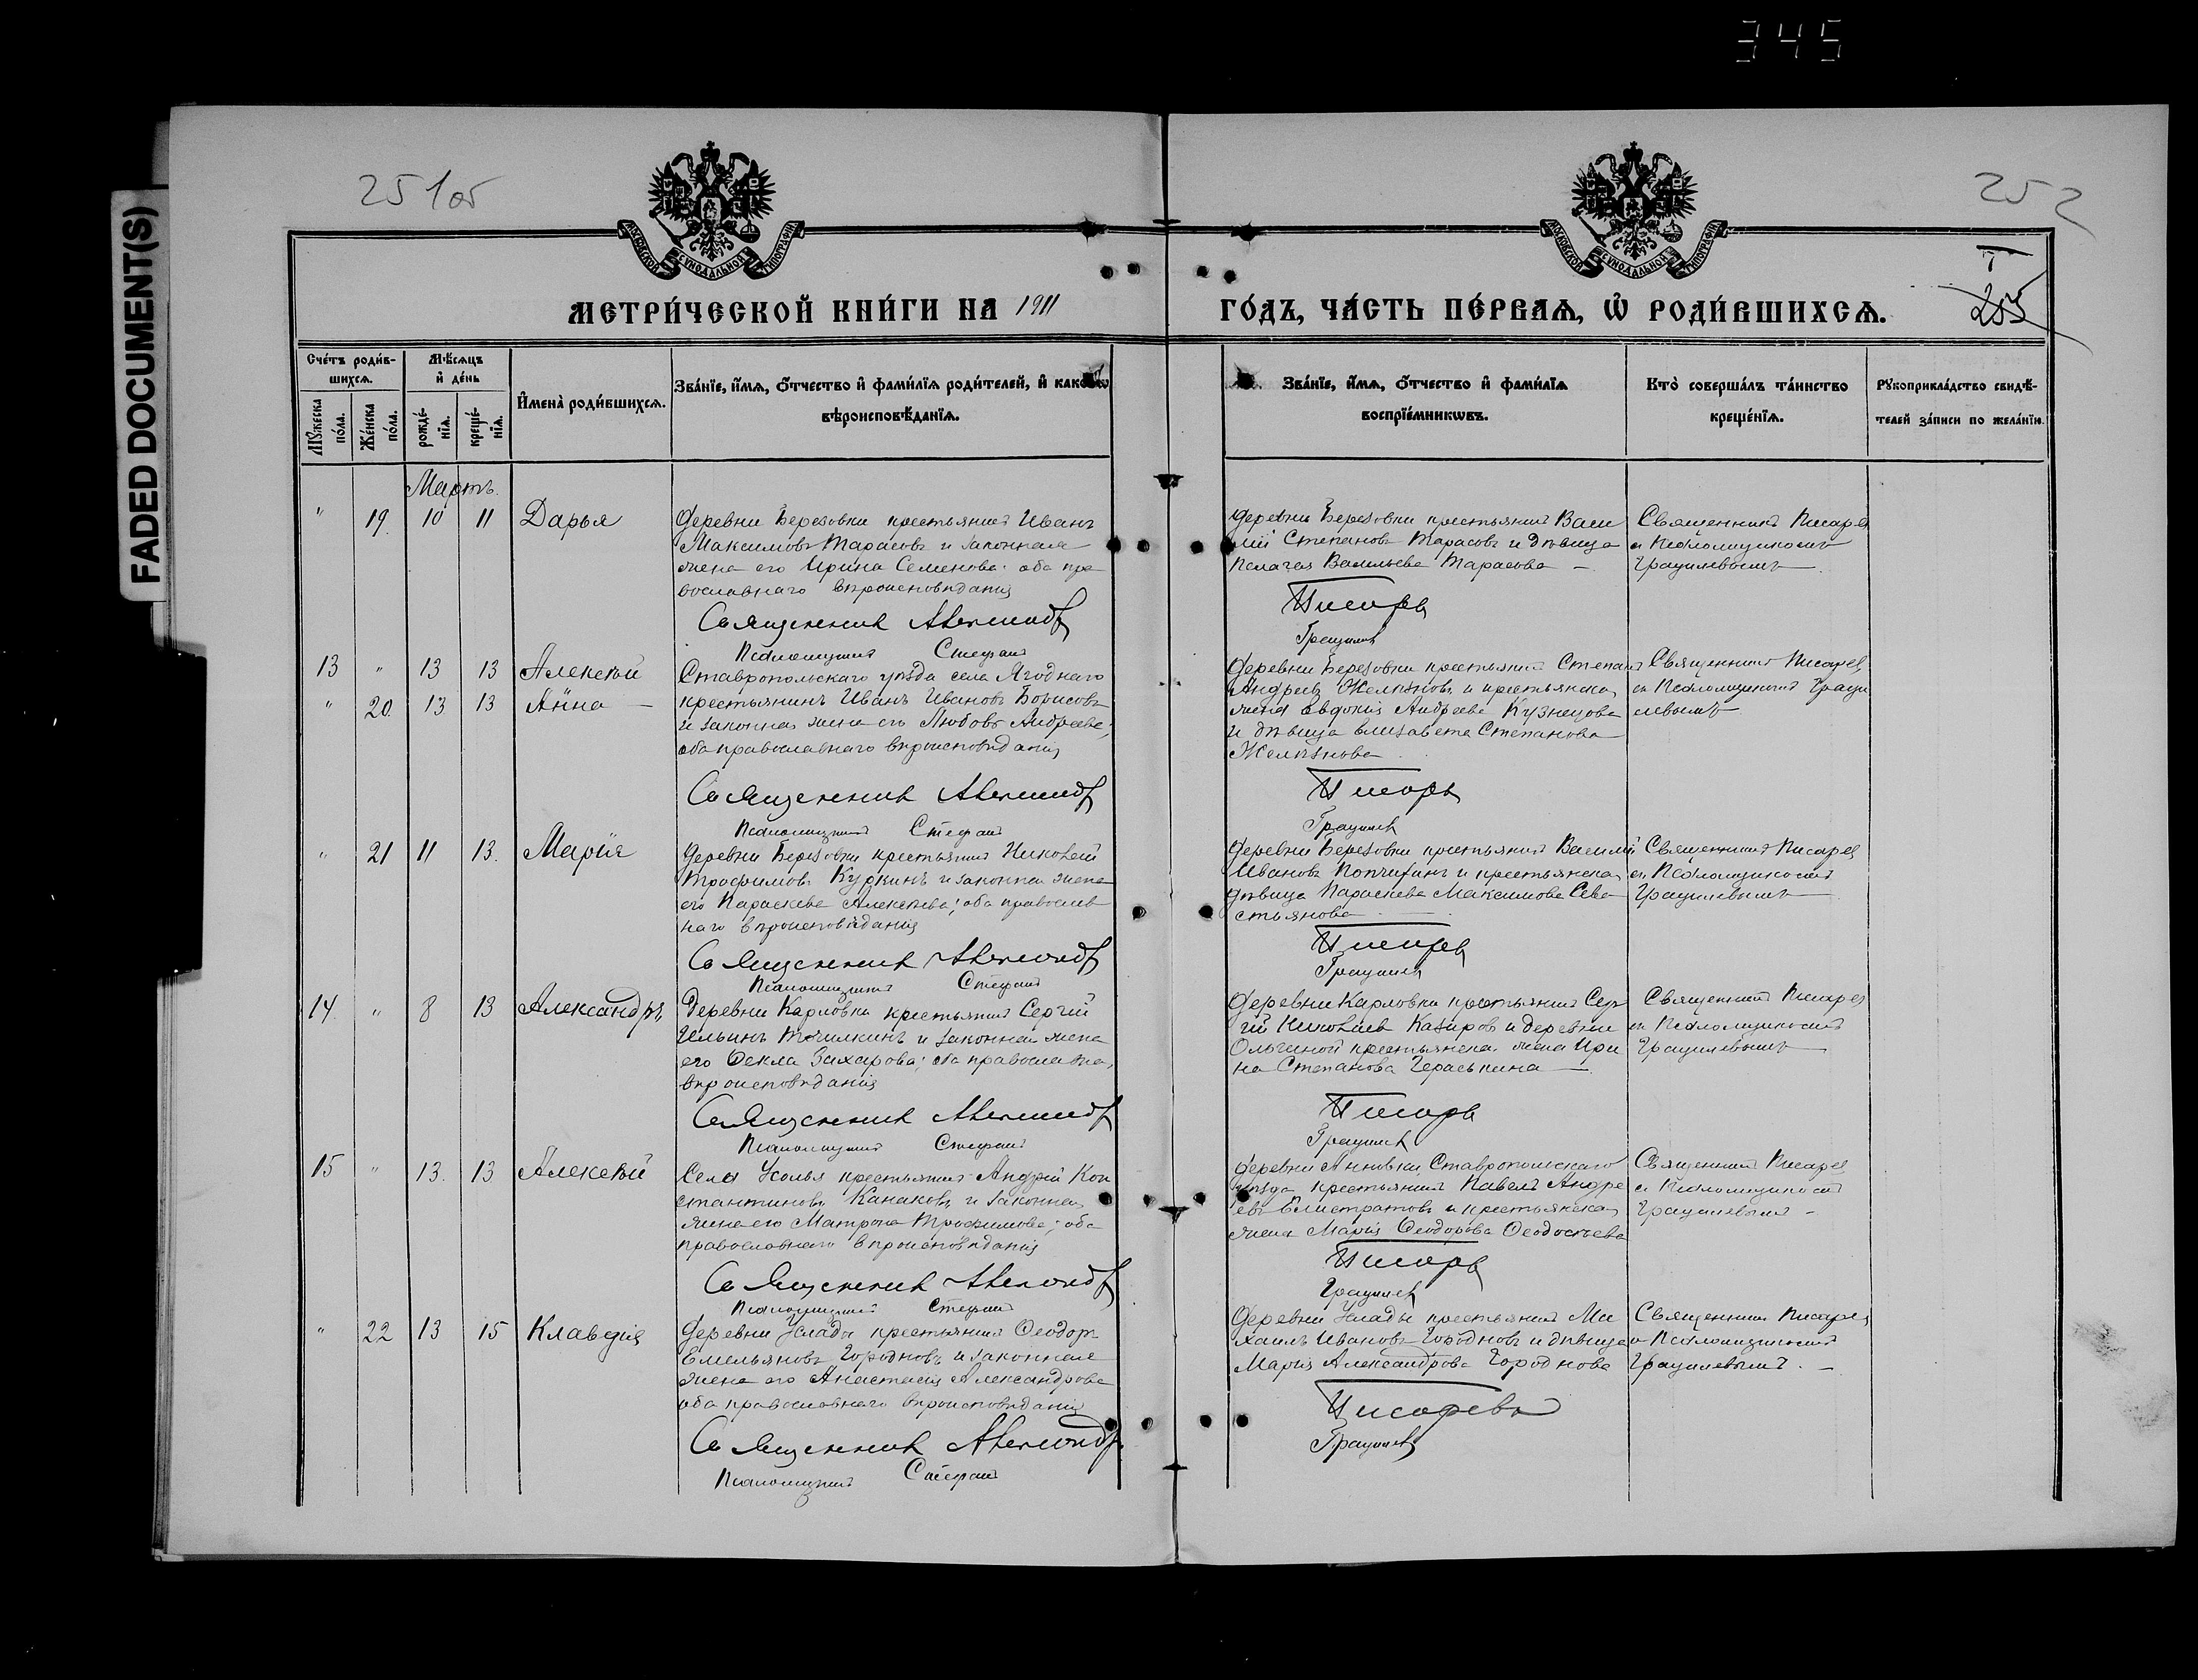 345
FADED DOCUMENT(S)
251об
252
МОСКОВСКОЙ СѴНОДАЛЬНОЙ ТИПОГРАФІИ
МОСКОВСКОЙ СѴНОДАЛЬНОЙ ТИПОГРАФІИ
МЕТРИ́ЧЕСКОЙ КНИ́ГИ НА 1911
ГО́ДЪ, ЧА́СТЬ ПЕ́РВАѦ, Ѡ҆ РОДИ́ВШИХСѦ.
255
Сче́тъ роди́вшихсѧ.
Мꙋ́жеска по́ла.
Же́нска по́ла.
Мѣ́сѧцъ и҆ де́нь
рожде́нїѧ.
креще́нїѧ.
И҆мена̀ роди́вшихсѧ.
Зва́нїе, и҆́мѧ, ѻ҆́тчество и҆ фами́лїѧ роди́телей, и҆ какогѡ
вѣроисповѣ́данїѧ.
Зва́нїе, и҆́мѧ, ѻ҆́тчество и҆ фами́лїѧ
воспрїе́мникѡвъ.
Кто̀ соверша́лъ та́инство
креще́нїѧ.
Рꙋкоприкла́дство свидѣ́-
телей за́писи по жела́нїю.
Мартъ.
" 19. 10 11 Дарья
Деревни Березовки крестьянинъ Иванъ
Максимовъ Тарасовъ и законная
жена его Ирина Семенова: оба пра
вославнаго вѣроисповѣданія
Священник
Псаломщикъ Стефан
Деревни Березовки крестьянинъ Васи
лій Степановъ Тарасовъ и дѣвица
Пелагея Васильева Тарасова —
Писарев
Грацилев
Священникъ Писарев
съ Псаломщикомъ
Грацилевымъ
13 " 13 13 Алексѣй
" 20. 13 13 Анна —
Ставропольскаго уѣзда села Ягоднаго
крестьянинъ Иванъ Ивановъ Борисовъ
и законная жена его Любовь Андреева;
оба православнаго вѣроисповѣданія
Священник
Псаломщикъ Стефан
Деревни Березовки крестьянинъ Степанъ
Андреевъ Желѣзновъ и крестьянская
жена Евдокія Андреева Кузнецова
и дѣвица Елисавета Степанова
Желѣзнова
Писарев
Грацилев
Священникъ Писарев
съ Псаломщикомъ Граци
левымъ
" 21 11 13. Марія
Деревни Березовки крестьянинъ Николай
Трофимовъ Куркинъ и законная жена
его Параскева Алексѣева; оба православ
наго вѣроисповѣданія
Священник
Псаломщикъ Стефан
Деревни Березовки крестьянинъ Василій
Ивановъ и крестьянская
дѣвица Параскева Максимова Сева
стьянова
Писарев
Грацилев
Священникъ Писарев
съ Псаломщикомъ
Грацилевымъ
14. " 8 13 Александръ
Деревни Карловки крестьянинъ Сергій
Ильинъ Точилкинъ и законная жена
его Ѳекла Захарова; оба православна
вѣроисповѣданія
Священник
Псаломщикъ Стефан
Деревни Карловки крестьянинъ Сер
гій Николаевъ Казировъ и деревни
Ольгиной крестьянская жена Ири
на Степанова Гераськина —
Писарев
Грацилев
Священникъ Писарев
съ Псаломщикомъ
Грацилевымъ
15 " 13. 13 Алексѣй
Села Усолья крестьянинъ Андрей Кон
стантиновъ Канаковъ и законная
жена его Матрона Трофимова; оба
православнаго вѣроисповѣданія
Священник
Псаломщикъ Стефан
Деревни Анновки Ставропольскаго
уѣзда крестьянинъ Павелъ Андре
евъ Елистратовъ и крестьянская
жена Марія Ѳеодорова Ѳеодосѣева
Писарев
Грацилев
Священникъ Писарев
съ Псаломщикомъ
Грацилевымъ —
" 22 13 15 Клавдія
Деревни Услады крестьянинъ Ѳеодоръ
Емельяновъ Городновъ и законная
жена его Анастасія Александрова
оба православнаго вѣроисповѣданія
Священник
Псаломщикъ Стефан
Деревни Услады крестьянинъ Ми
хаилъ Ивановъ Городновъ и дѣвица
Марія Александрова Городнова
Писарев
Грацилев
Священникъ Писарев
съ Псаломщикомъ
Грацилевымъ. —